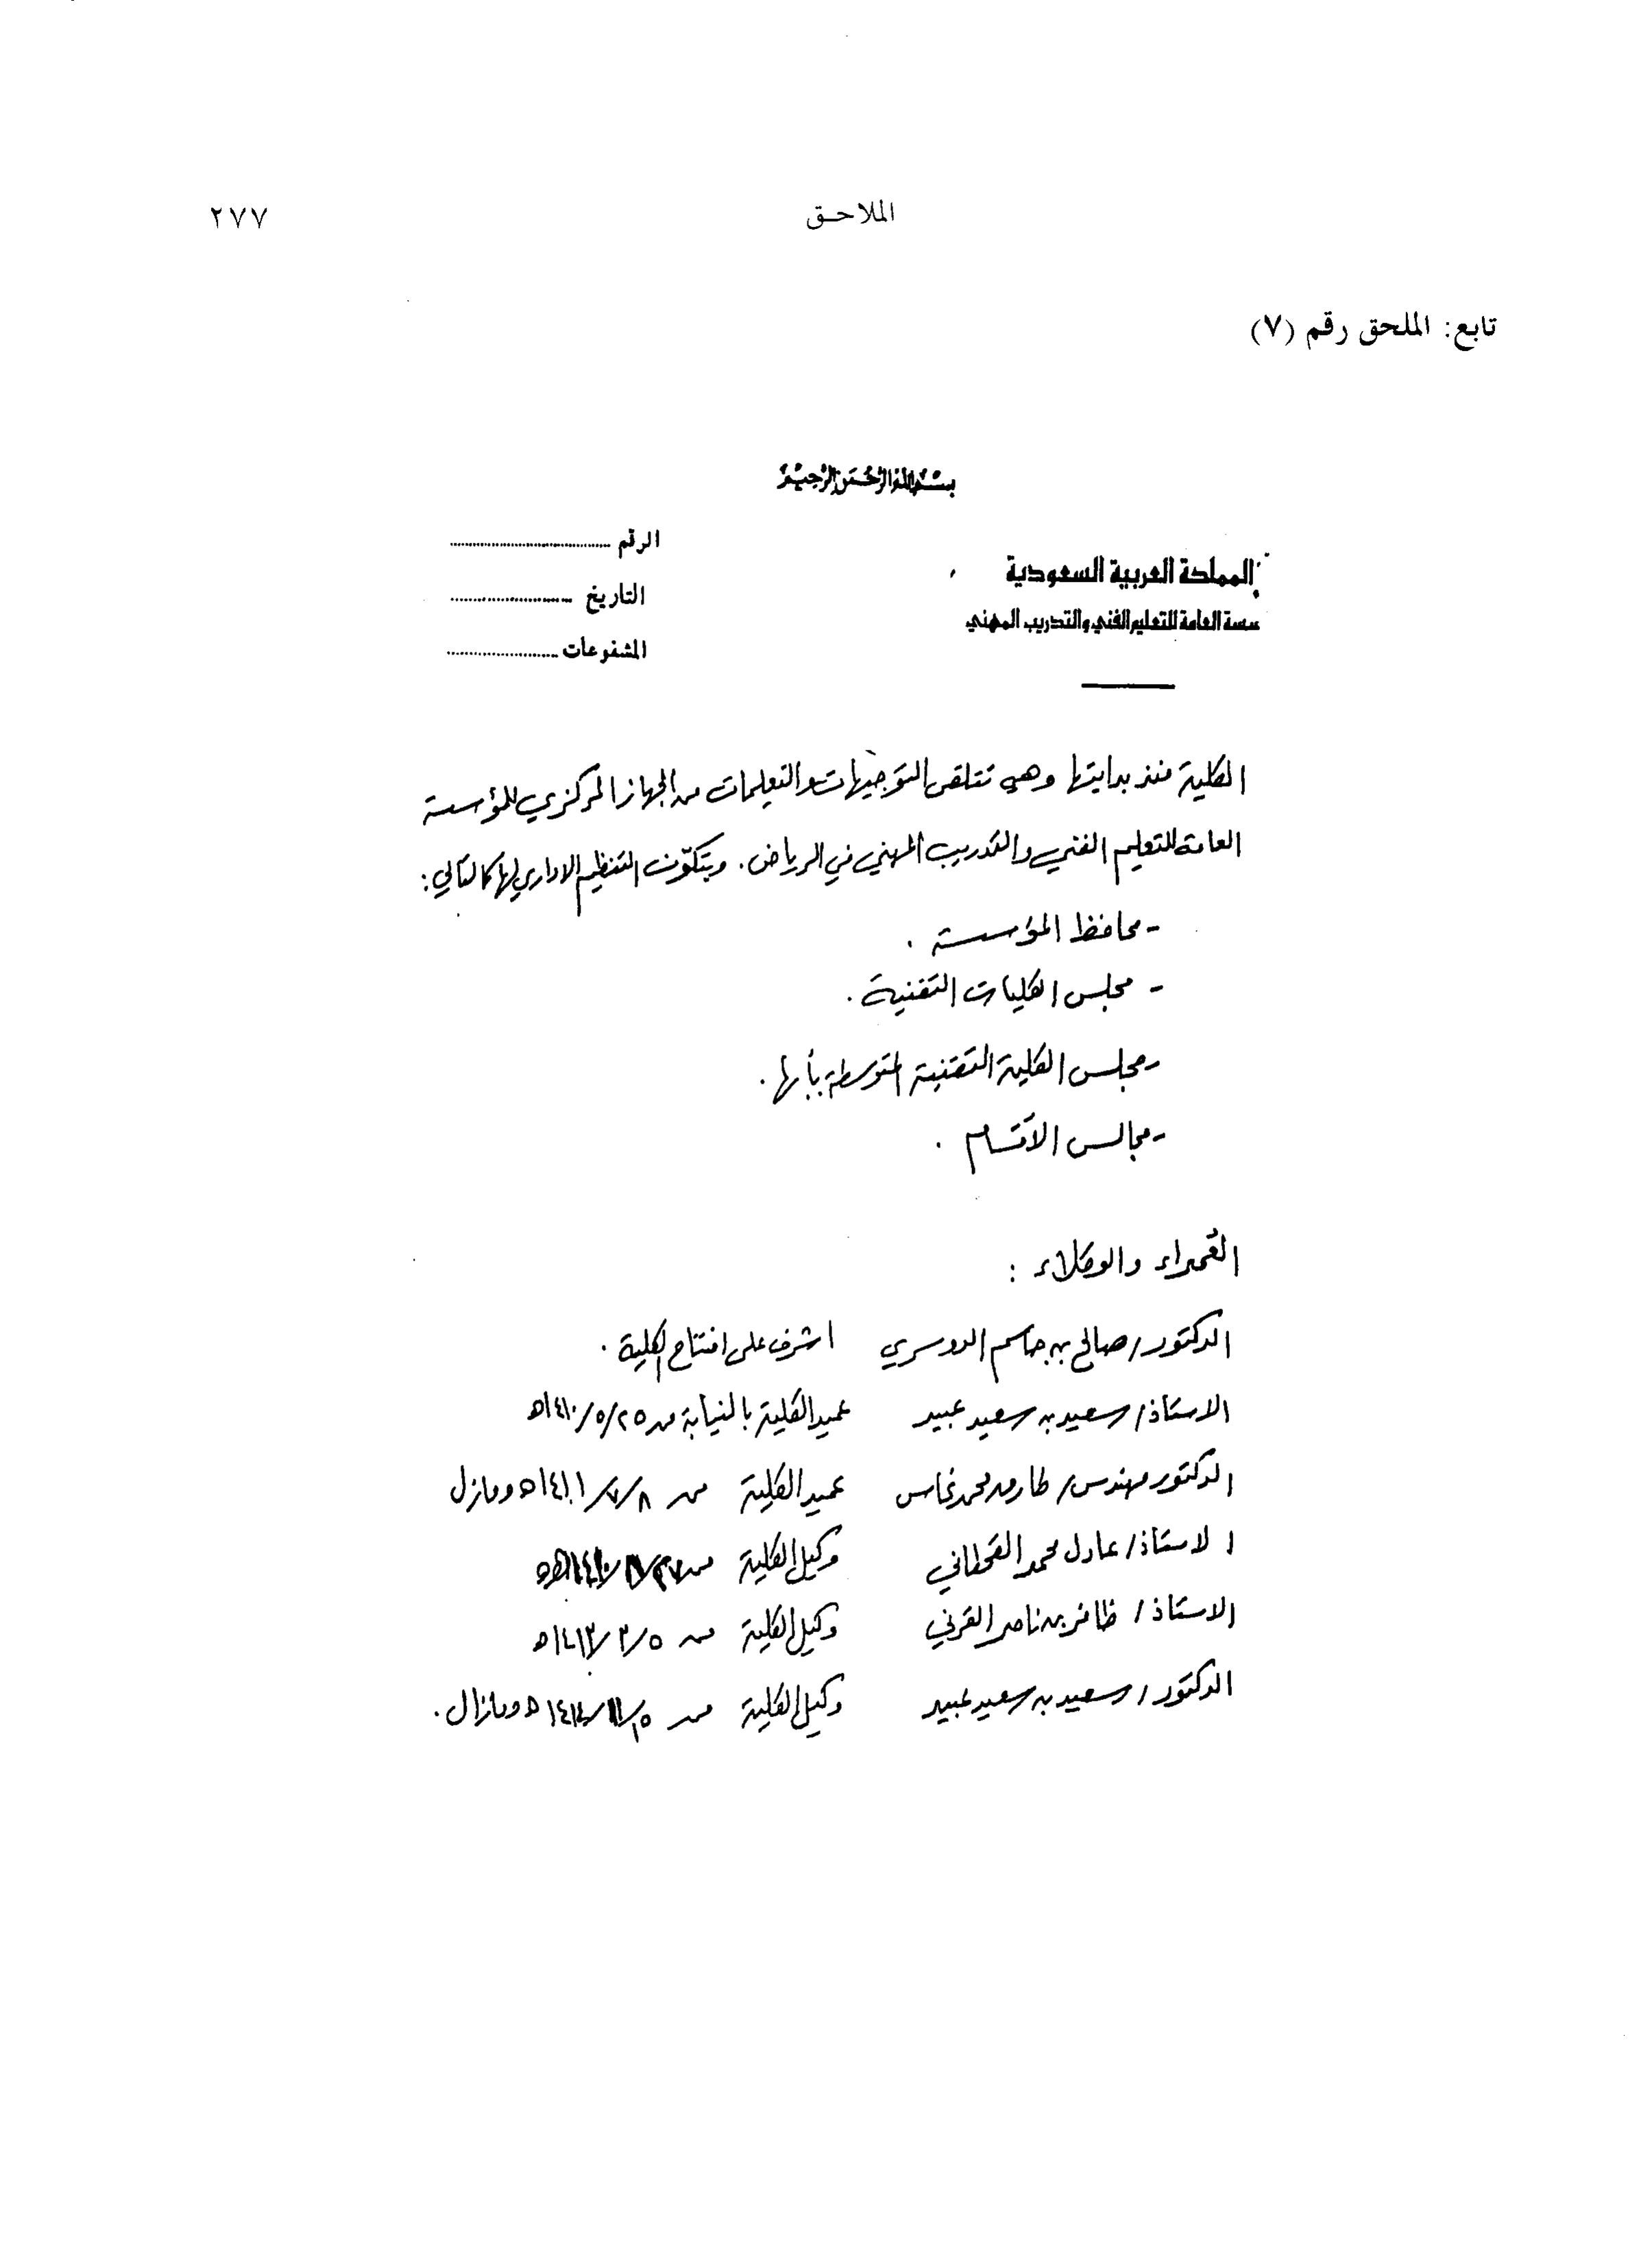 الملاحق
٢٧٧
تابع: الملحق رقم (٧)
بسم الله الرحمن الرحيم
المملكة العربية السعودية
سسة العامة للتعليم الفني والتدريب المهني
الرقم
التاريخ
المشفوعات
الكلية منذ بدايتها وهي تتلقى التوجيهات والتعليمات من الجهاز المركزي للمؤسسة
العامة للتعليم الفني والتدريب المهني في الرياض. ويتكوّن التنظيم الاداري لها كالتالي:
- محافظ المؤسسة.
- مجلس الكليات التقنية.
- مجلس الكلية التقنية المتوسطة بأبها.
- مجالس الأقسام.
العُمداء والوكلاء:
الدكتور/ صالح بن جاسم الدوسري اشرف على افتتاح الكلية.
الاستاذ/ سعيد بن سعيد عبيد عميد الكلية بالنيابة من ٢٥/٥/١٤١٠هـ
الدكتور مهندس/ طارق محمد نحاس عميد الكلية من ٨/٧/١٤١١هـ ومازل
الاستاذ/ عادل محمد القحطاني وكيل الكلية من
الاستاذ/ ظافر بن ناصر القرني وكيل الكلية من ٥/٣/١٤١٣هـ
الدكتور/ سعيد بن سعيد عبيد وكيل الكلية من ومازال.